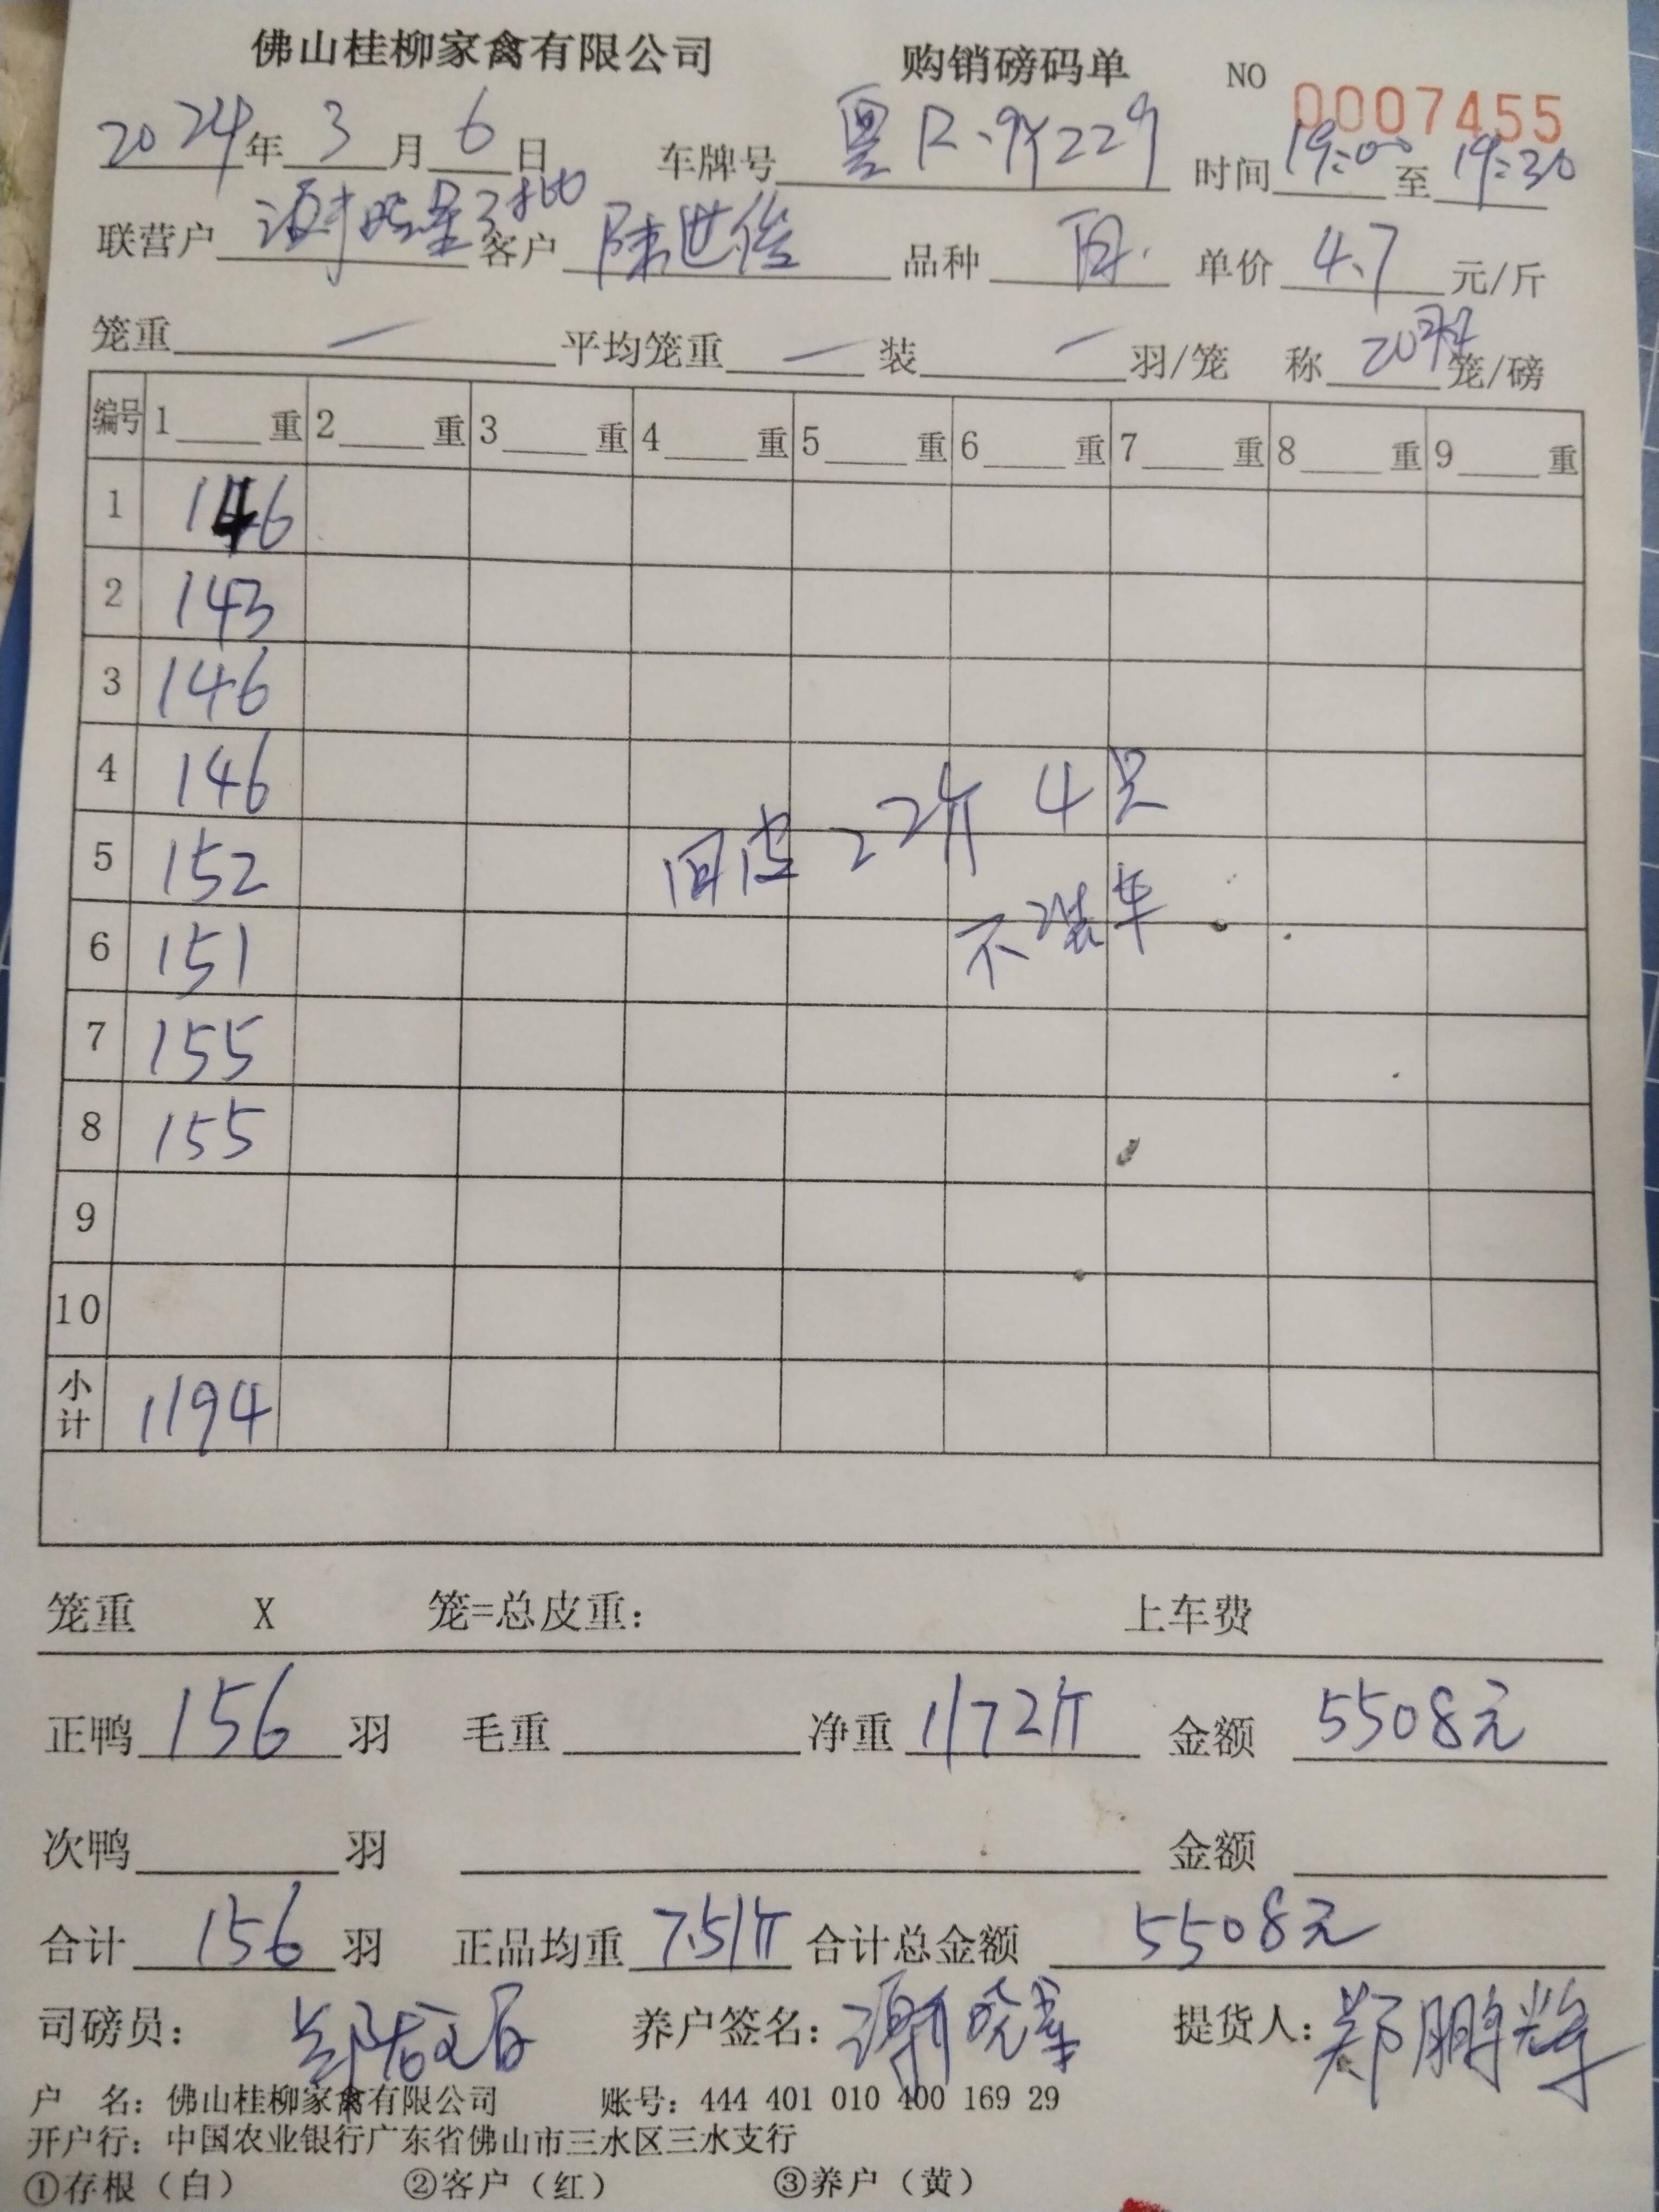 佛山桂柳家禽有限公司 购销磅码单 NO 0007455
2024年3月6日 车牌号 粤R·9Y229 时间 19:00 至 19:30
联营户 客户 陆世俊 品种 单价 4.7 元/斤
笼重 — 平均笼重 — 装 — 羽/笼 称 20 笼/磅
编号 1 重 2 重 3 重 4 重 5 重 6 重 7 重 8 重 9 重
1 146
2 143
3 146
4 146
旧皮 22斤 4只
5 152
不装车
6 151
7 155
8 155
9
10
小计 1194
笼重 X 笼=总皮重: 上车费
正鸭 156 羽 毛重 净重 1172斤 金额 5508元
次鸭 羽 金额
合计 156 羽 正品均重 7.51斤 合计总金额 5508元
司磅员: 养户签名: 提货人: 郑鹏辉
户 名: 佛山桂柳家禽有限公司 账号: 444 401 010 400 169 29
开户行: 中国农业银行广东省佛山市三水区三水支行
①存根（白） ②客户（红） ③养户（黄）